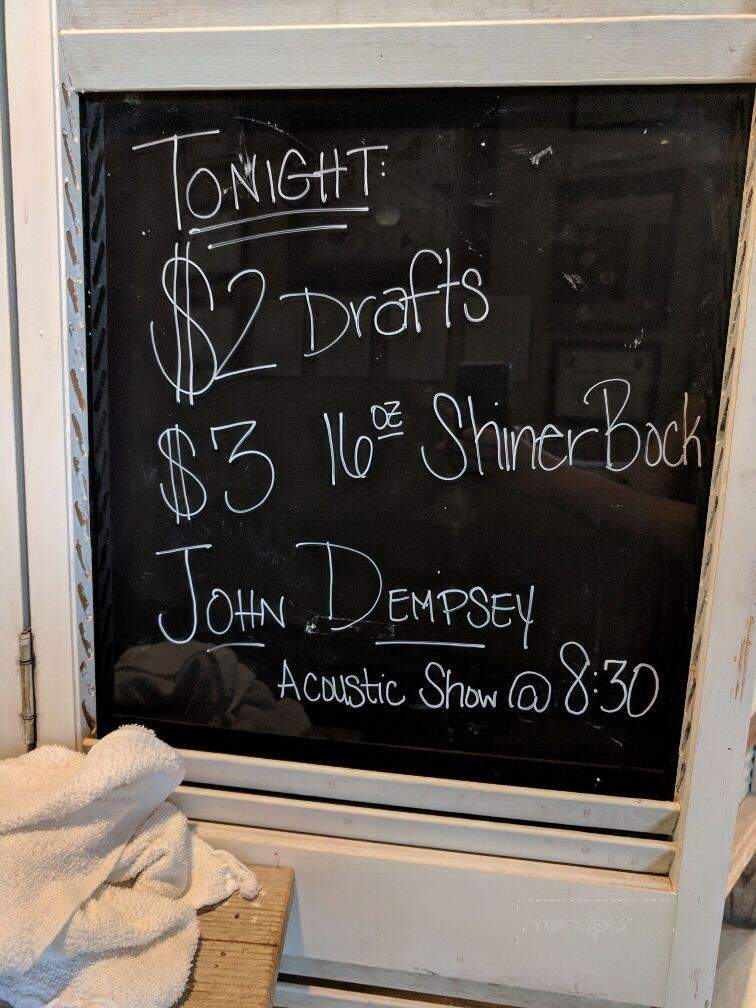 TONIGHT:
$2 Drafts
$3 16oz Shiner Bock
JOHN DEMPSEY
Acoustic Show @ 8:30
menupix